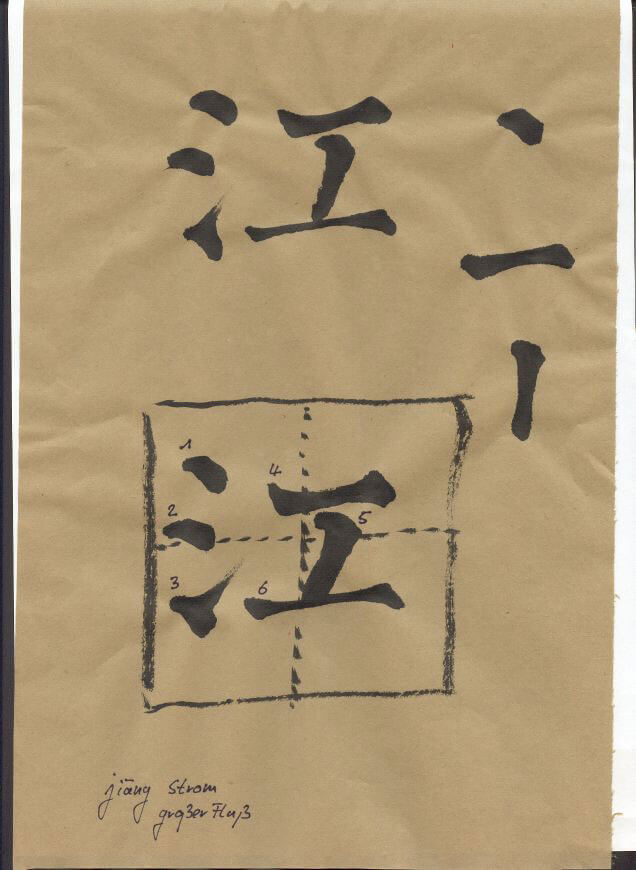 江
江
1
2
3
4
5
6
jiāng Strom
großer Fluß